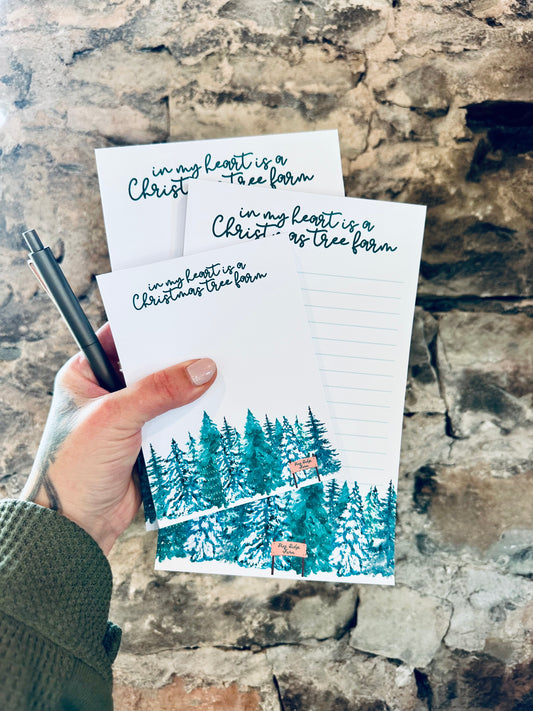 in my heart is a
Christmas tree farm
in my heart is a
Christmas tree farm
in my heart is a
Christmas tree farm
Pug Ridge
Pug Ridge